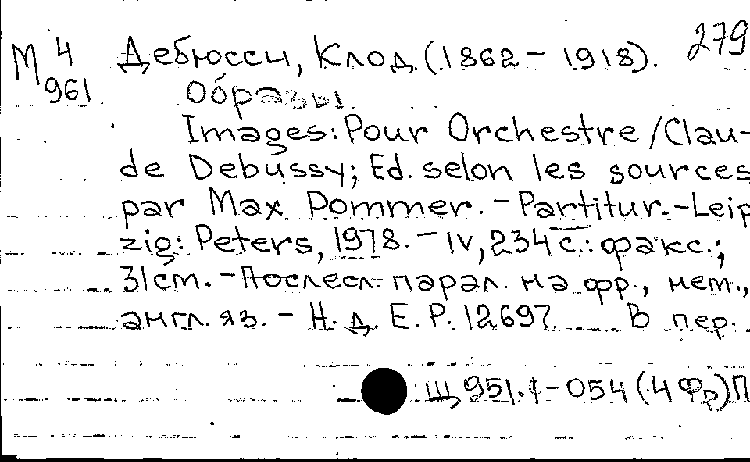 М 4 Дебюсси, Клод (1862 – 1918). 279
961 Образы.
Images: Pour Orchestre / Clau-
de Debussy; Ed. selon les sources
par Max Pommer. – Partitur. – Leip
zig: Peters, 1978. – IV, 234 с.: факс.;
31 cm. – Послесл. парал. на фр., нем.,
англ. яз. – Н. д. E. P. 12697 В пер.
Щ951.1-054(4Фр)П